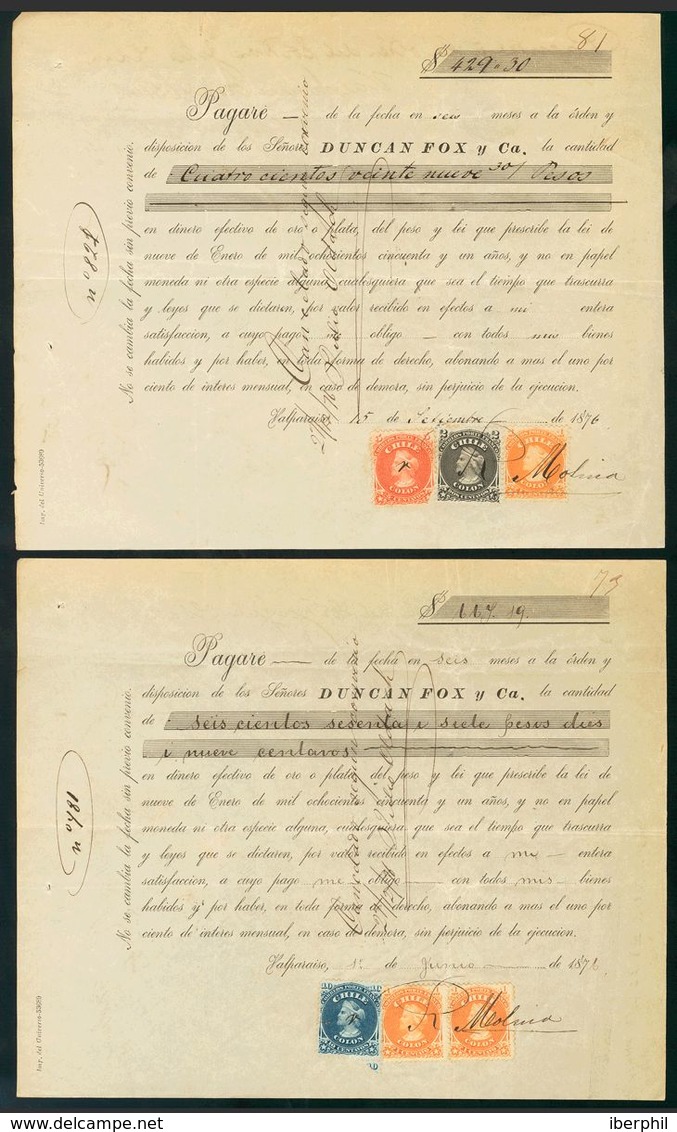 81
$ 429 " 30
Pagaré — de la fecha en seis meses a la órden y
disposicion de los Señores DUNCAN FOX y Ca. la cantidad
de Cuatro cientos veinte nueve 30/ Pesos
en dinero efectivo de oro o plata, del peso y lei que prescribe la lei de
nueve de Enero de mil ochocientos cincuenta y un años, y no en papel
moneda ni otra especie alguna, cualesquiera que sea el tiempo que trascurra
y leyes que se dictaren, por valor recibido en efectos a mi entera
satisfaccion, a cuyo pago obligo — con todos mis bienes
habidos y por haber, en toda forma de derecho, abonando a mas el uno por
ciento de interes mensual, en caso de demora, sin perjuicio de la ejecucion.
Valparaiso, 15 de Setiembre de 1876
R Molina
No se cambia la fecha sin previo convenio.
Cancelado segun convenio
Imp. del Universo-53699
CORREOS PORTE FRANCO
CHILE
COLON
2 CHILE 2
COLON
CHILE
COLON
75
$ 667. 19.
Pagaré — de la fecha en seis meses a la órden y
disposicion de los Señores DUNCAN FOX y Ca. la cantidad
de seis cientos sesenta i siete pesos dies
i nueve centavos
en dinero efectivo de oro o plata, del peso y lei que prescribe la lei de
nueve de Enero de mil ochocientos cincuenta y un años, y no en papel
moneda ni otra especie alguna, cualesquiera que sea el tiempo que trascurra
y leyes que se dictaren, por valor recibido en efectos a me — entera
satisfaccion, a cuyo pago me obligo — con todos mis — bienes
habidos y por haber, en toda forma de derecho, abonando a mas el uno por
ciento de interes mensual, en caso de demora, sin perjuicio de la ejecucion.
Valparaiso, 1º de Junio — de 1876
R Molina
No se cambia la fecha sin previo convenio.
Cancelado segun convenio
Imp. del Universo-53699
10 CHILE 10
COLON
10 CENTAVOS
CHILE
COLON
CHILE
COLON
www.delcampe.net
iberphil